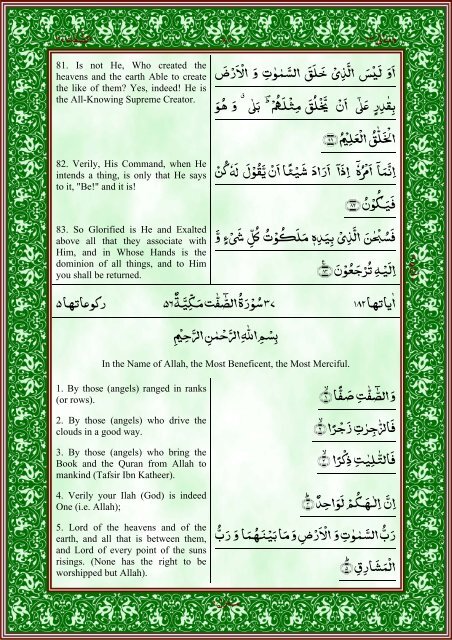 81. Is not He, Who created the
heavens and the earth Able to create
the like of them? Yes, indeed! He is
the All-Knowing Supreme Creator.
اَوَ لَيْسَ الَّذِیْ خَلَقَ السَّمٰوٰتِ وَ الْاَرْضَ
بِقٰدِرٍ عَلٰۤی اَنْ یَّخْلُقَ مِثْلَهُمْ ؔ بَلٰی ۗ وَ هُوَ
الْخَلّٰقُ الْعَلِیْمُ ﴿۸۱﴾
82. Verily, His Command, when He
intends a thing, is only that He says
to it, "Be!" and it is!
اِنَّمَاۤ اَمْرُهٗۤ اِذَاۤ اَرَادَ شَیْـًٔا اَنْ یَّقُوْلَ لَهٗ كُنْ
فَیَكُوْنُ ﴿۸۲﴾
83. So Glorified is He and Exalted
above all that they associate with
Him, and in Whose Hands is the
dominion of all things, and to Him
you shall be returned.
فَسُبْحٰنَ الَّذِیْ بِیَدِهٖ مَلَكُوْتُ كُلِّ شَیْءٍ وَّ
اِلَیْهِ تُرْجَعُوْنَ ﴿۸۳﴾
اٰیاتها ۱۸۲ ۳۷ سُوْرَةُ الصّٰٓفّٰت مَكِّیَّةٌ ۵۶ ركوعاتها ۵
بِسْمِ اللّٰهِ الرَّحْمٰنِ الرَّحِیْمِ
In the Name of Allah, the Most Beneficent, the Most Merciful.
1. By those (angels) ranged in ranks
(or rows).
وَ الصّٰٓفّٰتِ صَفًّا ﴿۱﴾
2. By those (angels) who drive the
clouds in a good way.
فَالزّٰجِرٰتِ زَجْرًا ﴿۲﴾
3. By those (angels) who bring the
Book and the Quran from Allah to
mankind (Tafsir Ibn Katheer).
فَالتّٰلِیٰتِ ذِكْرًا ﴿۳﴾
4. Verily your Ilah (God) is indeed
One (i.e. Allah);
اِنَّ اِلٰـهَكُمْ لَوَاحِدٌ ﴿۴﴾
5. Lord of the heavens and of the
earth, and all that is between them,
and Lord of every point of the suns
risings. (None has the right to be
worshipped but Allah).
رَبُّ السَّمٰوٰتِ وَ الْاَرْضِ وَ مَا بَیْنَهُمَا وَ رَبُّ
الْمَشَارِقِ ﴿۵﴾